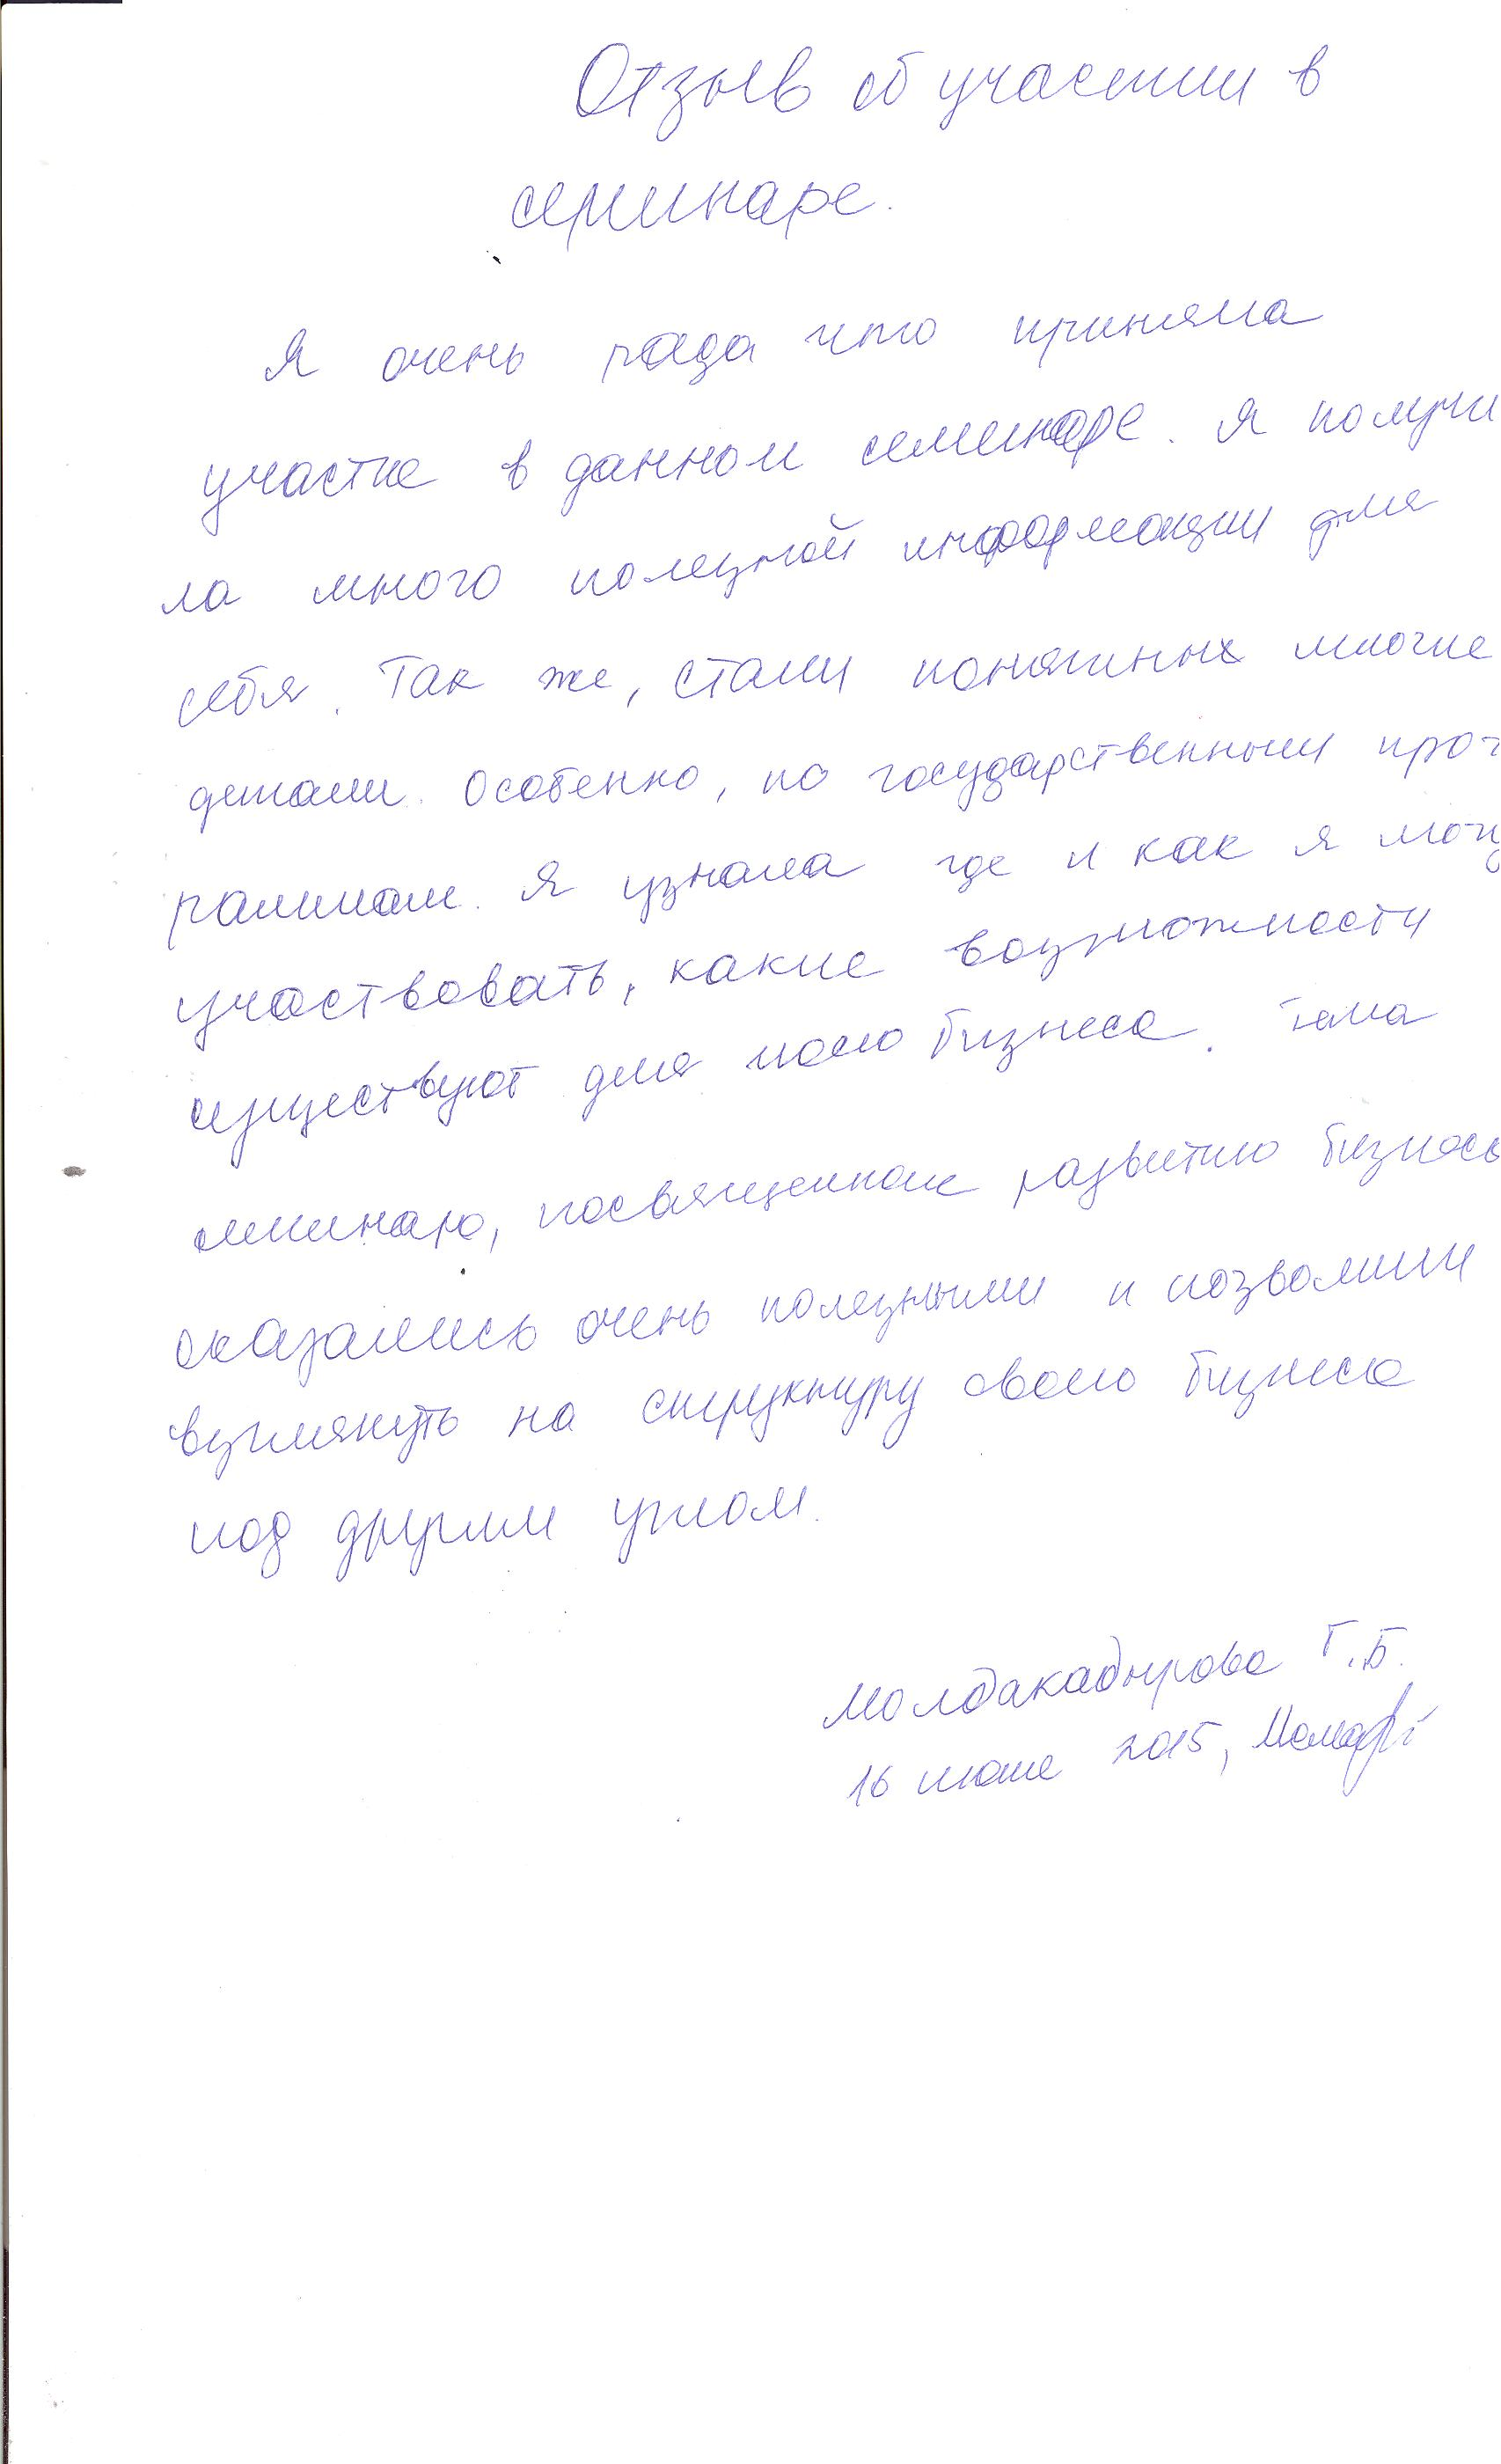 Отзыв об участии в
семинаре.
Я очень рада что приняла
участие в данном семинаре. Я получи
ла много полезной информации для
себя. Так же, стали понятных многие
детали. Особенно, по государственным прог
раммам. Я узнала где и как я могу
участвовать, какие возможности
существуют для моего бизнеса. Тема
семинаю, посвященном развитию бизнеса
оказались очень полезными и позволили
взглянуть на структуру своего бизнеса
под другим углом.
Молдакадырова Г.Б.
16 июня 2015,